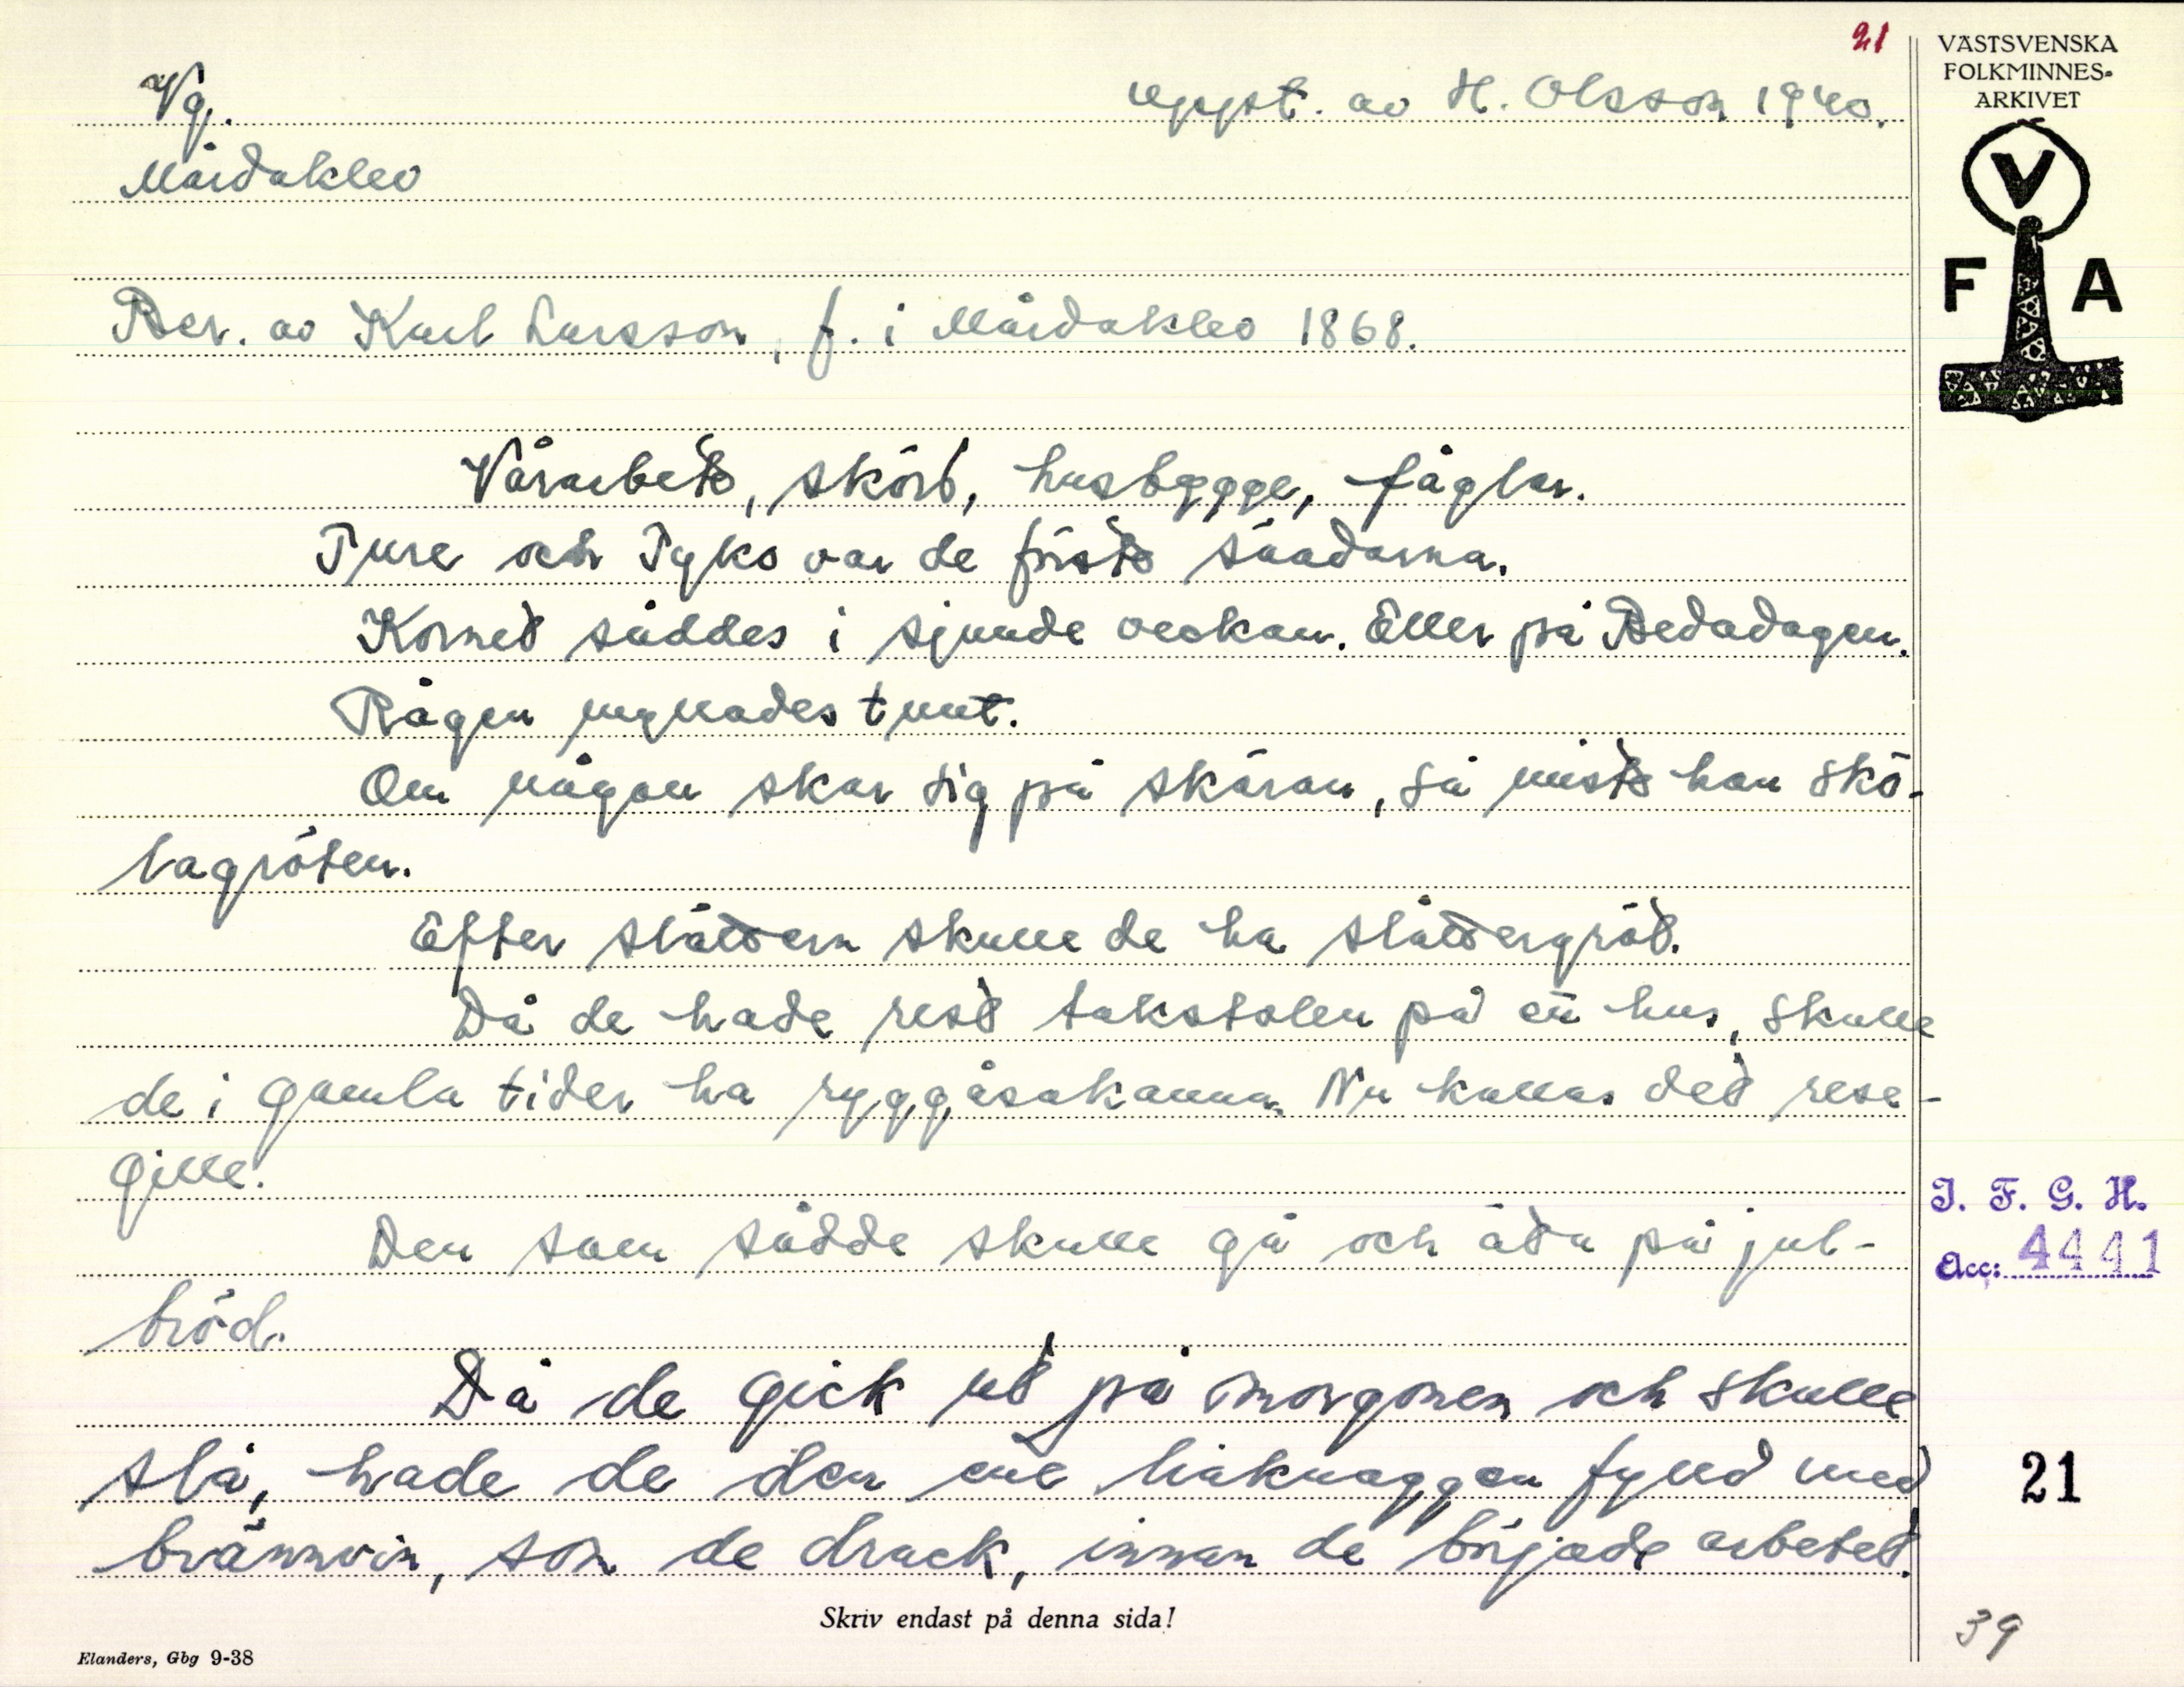 21
Vg.
uppt. av H. Olsson 1940.
Mårdaklev
Ber. av Karl Larsson, f. i Mårdaklev 1868.
Vårarbete, skörd, husbygge, fåglar.
Ture och Tyko var de första såadarna.
Kornet såddes i sjunde veckan. Eller på Bedadagen.
Rågen myllades tunt.
Om någon skar sig på skäran, så miste han skö-
tagröten.
Efter slåttern skulle de ha slåttergröt.
Då de hade rest takstolen på ett hus, skulle
de i gamla tider ha ryggåsakanna. Nu kallas det rese-
gille.
Den som sådde skulle gå och äta på jul-
bröd.
Då de gick ut på morgonen och skulle
slå, hade de den ene liaknaggen fylld med
brännvin, som de drack, innan de började arbetet.
Skriv endast på denna sida!
Elanders, Gbg 9-38
VÄSTSVENSKA
FOLKMINNES-
ARKIVET
V
F A
I. F. G. H.
Acc: 4441
21
39